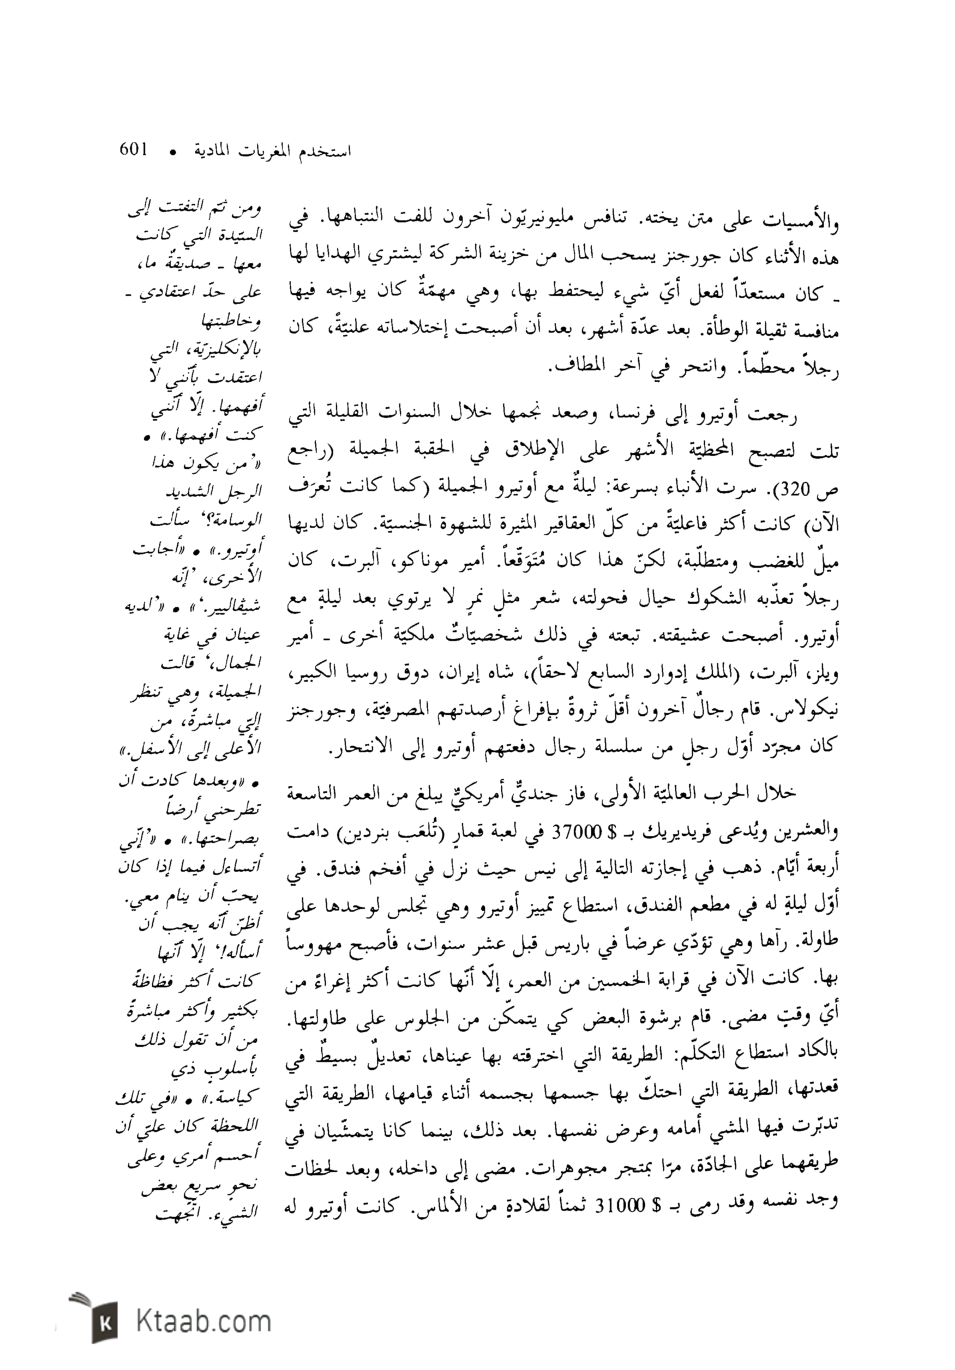 استخدم المغريات المادية • 601
والأمسيات على متن يخته. تنافس مليونيريّون آخرون للفت النتباهها. في
هذه الأثناء كان جورجنز يسحب المال من خزينة الشركة ليشتري الهدايا لها
ـ كان مستعدّاً لفعل أيّ شيء ليحتفط بها، وهي مهمّةٌ كان يواجه فيها
منافسة ثقيلة الوطأة. بعد عدّة أشهر، بعد أن أصبحت إختلاساته علنيّةً، كان
رجلاً محطّماً. وانتحر في آخر المطاف.
رجعت أوتيرو إلى فرنسا، وصعد نجمها خلال السنوات القليلة التي
تلت لتصبح المحظيّة الأشهر على الإطلاق في الحقبة الجميلة (راجع
ص 320). سرت الأنباء بسرعة: ليلةٌ مع أوتيرو الجميلة (كما كانت تُعرَف
الآن) كانت أكثر فاعليّةً من كلّ العقاقير المثيرة للشهوة الجنسيّة. كان لديها
ميلٌ للغضب ومتطلّبة، لكنّ هذا كان مُتَوَقّعاً. أمير موناكو، آلبرت، كان
رجلاً تعذّبه الشكوك حيال فحولته، شعر مثلِ نمرٍ لا يرتوي بعد ليلةٍ مع
أوتيرو. أصبحت عشيقته. تبعته في ذلك شخصيّاتٌ ملكيّة أخرى ـ أمير
ويلز، آلبرت، (الملك إدوارد السابع لاحقاً)، شاه إيران، دوق روسيا الكبير،
نيكولاس. قام رجالٌ آخرون أقلّ ثروةً بإفراغ أرصدتهم المصرفيّة، وجورجنز
كان مجرّد أوّل رجلٍ من سلسلة رجال دفعتهم أوتيرو إلى الانتحار.
خلال الحرب العالميّة الأولى، فاز جنديٌّ أمريكيٌّ يبلغ من العمر التاسعة
والعشرين ويُدعى فريديريك بـ $ 37000 في لعبة قمارٍ (تُلعَب بنردين) دامت
أربعة أيّام. ذهب في إجازته التالية إلى نيس حيث نزل في أفخم فندق. في
أوّل ليلةٍ له في مطعم الفندق، استطاع تمييز أوتيرو وهي تجلس لوحدها على
طاولة. رآها وهي تؤدّي عرضاً في باريس قبل عشر سنوات، فأصبح مهووساً
بها. كانت الآن في قرابة الخمسين من العمر، إلّا أنّها كانت أكثر إغراءً من
أيّ وقتٍ مضى. قام برشوة البعض كي يتمكّن من الجلوس على طاولتها.
بالكاد استطاع التكلّم: الطريقة التي اخترقته بها عيناها، تعديلٌ بسيطٌ في
قعدتها، الطريقة التي احتكّ بها جسمها بجسمه أثناء قيامها، الطريقة التي
تدبّرت فيها المشي أمامه وعرض نفسها. بعد ذلك، بينما كانا يتمشّيان في
طريقهما على الجادّة، مرّا بمتجر مجوهرات. مضى إلى داخله، وبعد لحظات
وجد نفسه وقد رمى بـ $ 31000 ثمناً لقلادةٍ من الألماس. كانت أوتيرو له
ومن ثمّ التفتت إلى
السيّدة التي كانت
معها ـ صديقةٌ ما،
على حدّ اعتقادي ـ
وخاطبتها
بالإنكليزيّة، التي
اعتقدت بأنّني لا
أفهمها. إلّا أنّني
كنت أفهمها.» •
«’من يكون هذا
الرجل الشديد
الوسامة؟‘ سألت
أوتيرو.» • «أجابت
الأخرى، ’إنّه
شيڤاليير.‘» • «’لديه
عينان في غاية
الجمال،‘ قالت
الجميلة، وهي تنظر
إليّ مباشرةً، من
الأعلى إلى الأسفل.»
• «وبعدها كادت أن
تطرحني أرضاً
بصراحتها.» • «’إنّي
أتساءل فيما إذا كان
يحبّ أن ينام معي.
أظنّ أنّه يجب أن
أسأله!‘ إلّا أنّها
كانت أكثر فظاظةً
بكثير وأكثر مباشرةً
من أن تقول ذلك
بأسلوبٍ ذي
كياسة.» • «في تلك
اللحظة كان عليّ أن
أحسم أمري وعلى
نحوٍ سريعٍ بعض
الشيء. اتّجهت
K Ktaab.com